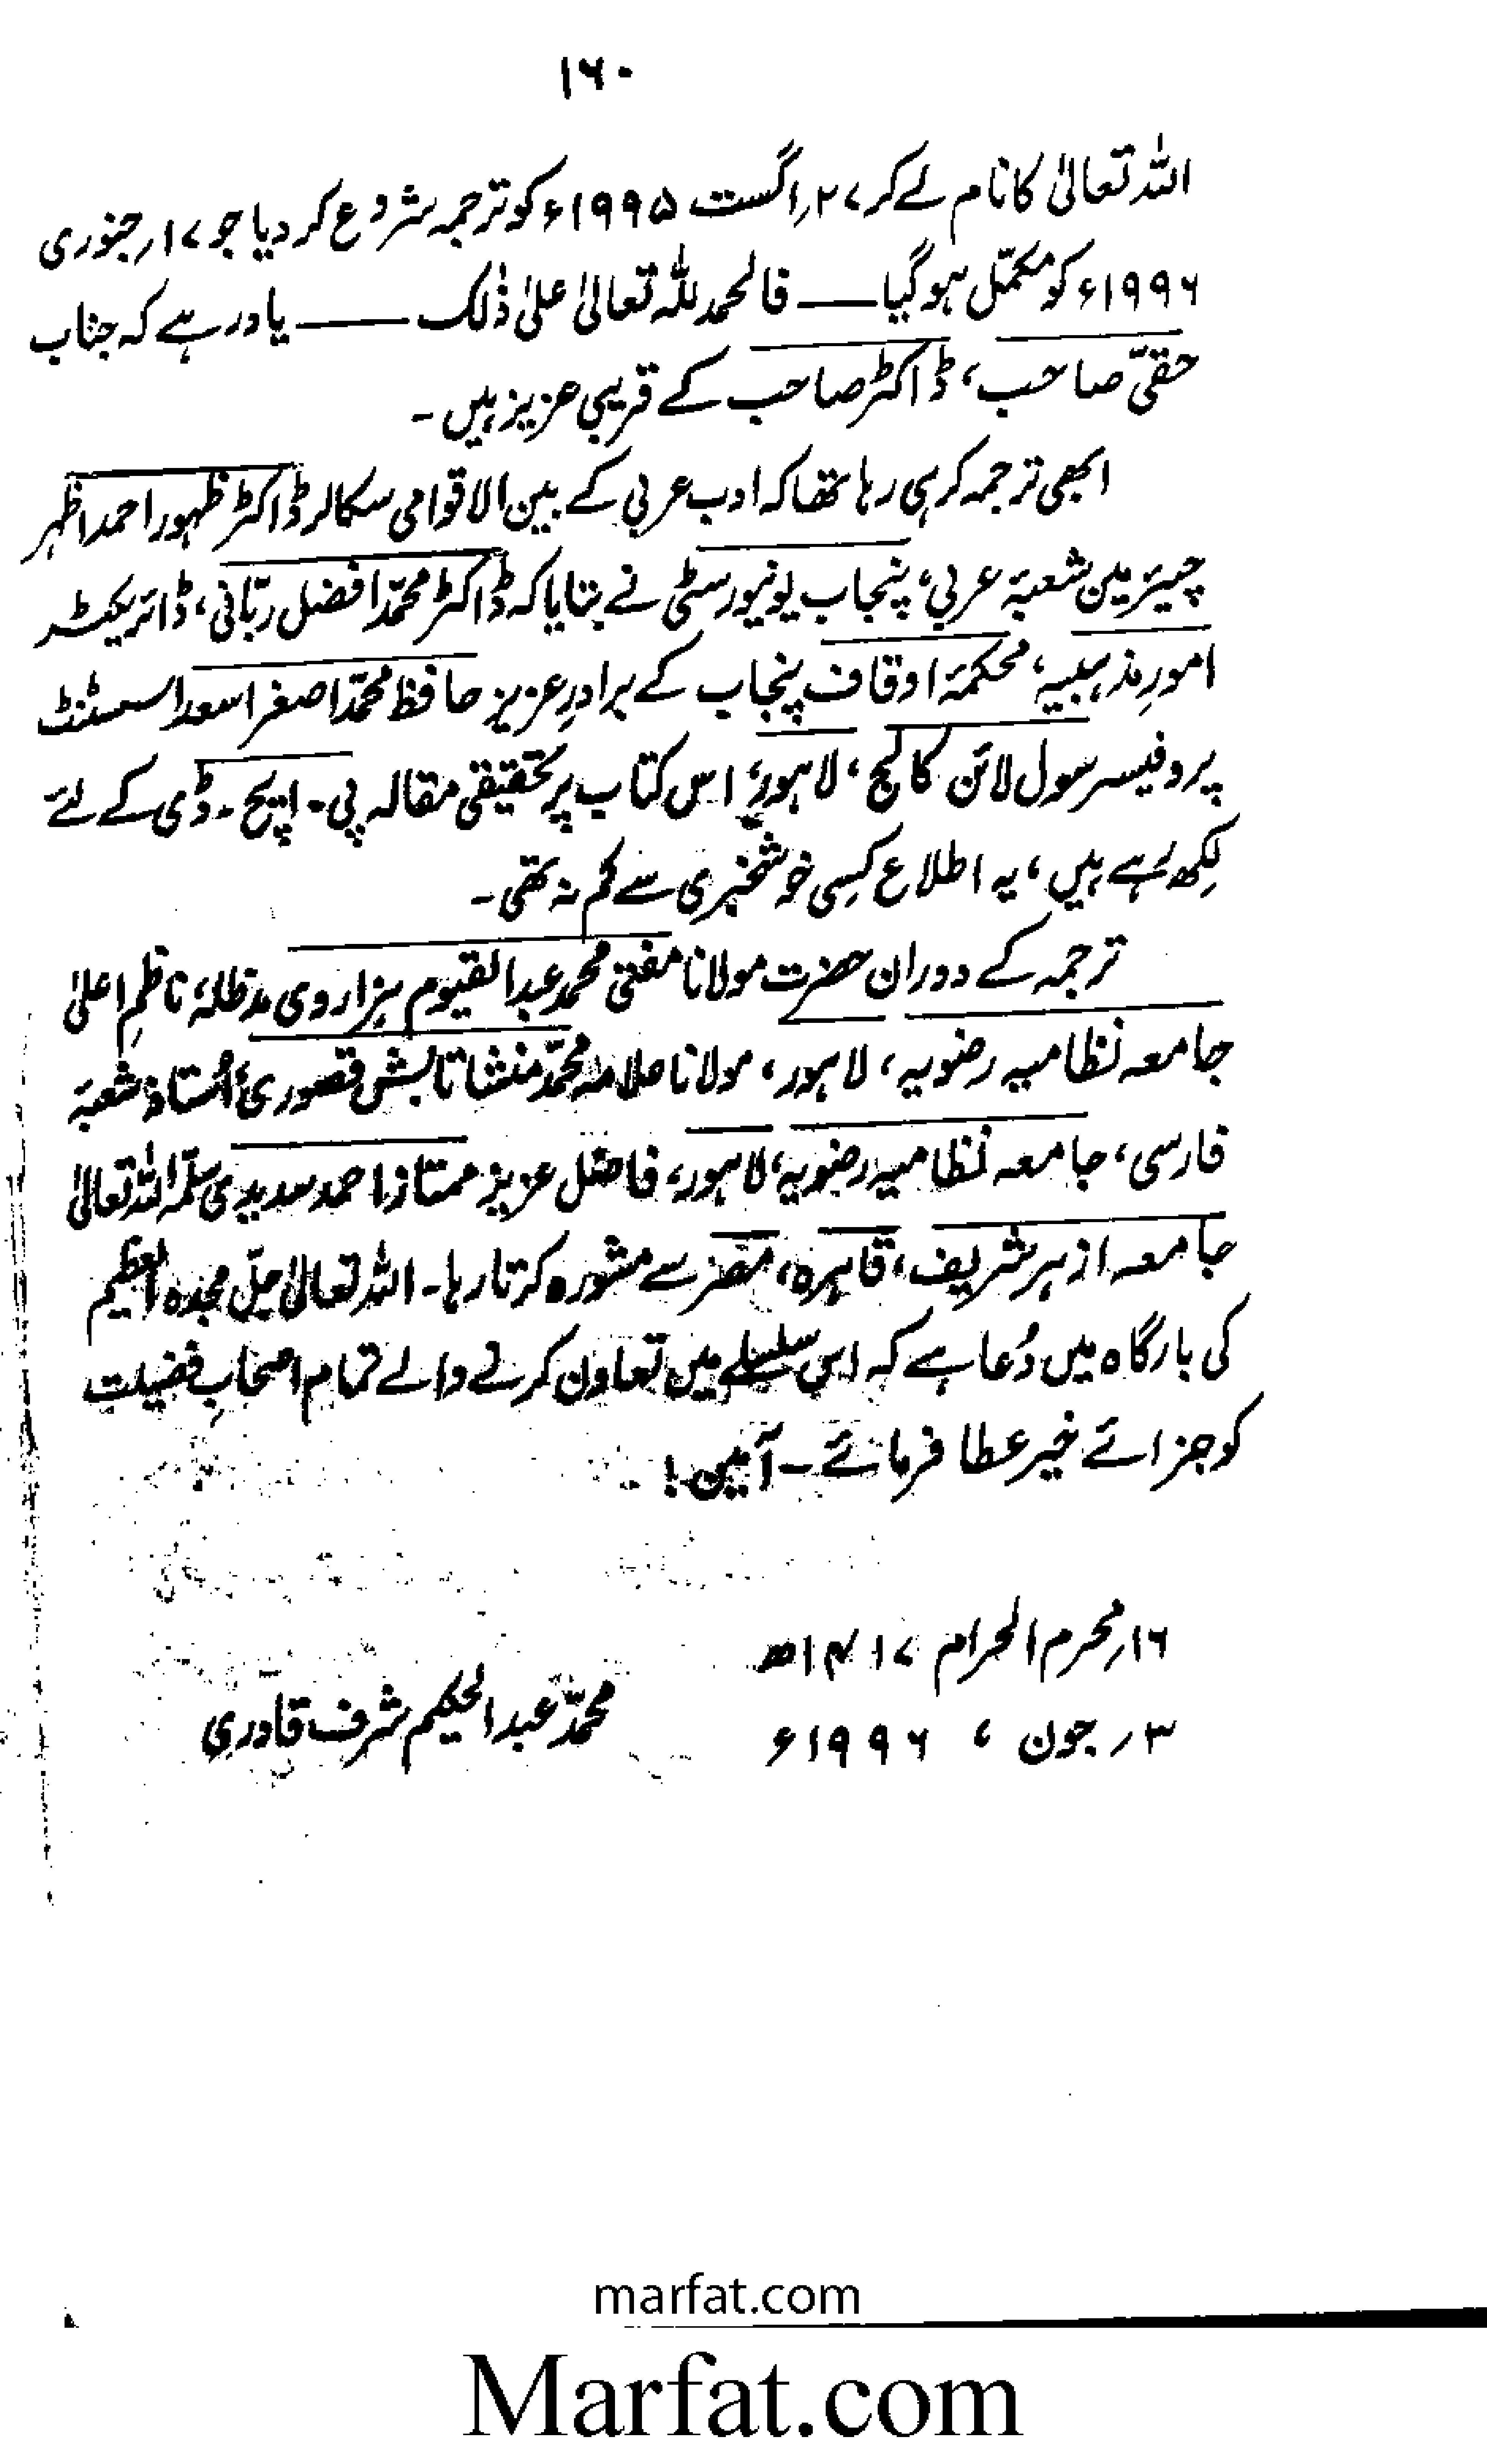 ۱۶۰
اللہ تعالیٰ کا نام لے کر ۲۷؍اگست ۱۹۹۵ء کو ترجمہ شروع کر دیا جو ۱۷؍جنوری
۱۹۹۶ء کو مکمّل ہو گیا —— فالحمد للہ تعالیٰ علیٰ ذٰلک —— یاد رہے کہ جناب
حقیّ صاحب، ڈاکٹر صاحب کے قریبی عزیز ہیں۔
ابھی ترجمہ کر ہی رہا تھا کہ ادب عربی کے بین الاقوامی سکالر ڈاکٹر ظہور احمد اظہر
چیئرمین شعبۂ عربی، پنجاب یونیورسٹی نے بتایا کہ ڈاکٹر محمّد افضل ربّانی، ڈائریکٹر
امورِ مذہبیہ، محکمۂ اوقاف پنجاب کے برادرِ عزیز حافظ محمّد اصغر اسعد اسسٹنٹ
پروفیسر سول لائن کالج، لاہور، اس کتاب پر تحقیقی مقالہ پی۔ ایچ۔ ڈی کے لئے
لکھ رہے ہیں، یہ اطلاع کسی خوشخبری سے کم نہ تھی۔
ترجمہ کے دوران حضرت مولانا مفتی محمد عبدالقیوم ہزاروی مدظلہٗ ناظمِ اعلیٰ
جامعہ نظامیہ رضویہ، لاہور، مولانا علامہ محمّد منشا تابش قصوری، اُستاذ شعبۂ
فارسی، جامعہ نظامیہ رضویہ، لاہور، فاضل عزیز ممتاز احمد سدیدی سلّمہ اللہ تعالیٰ
جامعہ ازہر شریف، قاہرہ، مصر سے مشورہ کرتا رہا۔ اللہ تعالیٰ جلّ مجدہ العظیم
کی بارگاہ میں دُعا ہے کہ اس سلسلے میں تعاون کرنے والے تمام اصحابِ فضیلت
کو جزائے خیر عطا فرمائے ۔ آمین!
۱۶؍محرم الحرام ۱۴۱۷ھ
۳؍جون، ۱۹۹۶ء
محمّد عبدالحکیم شرف قادری
marfat.com
Marfat.com